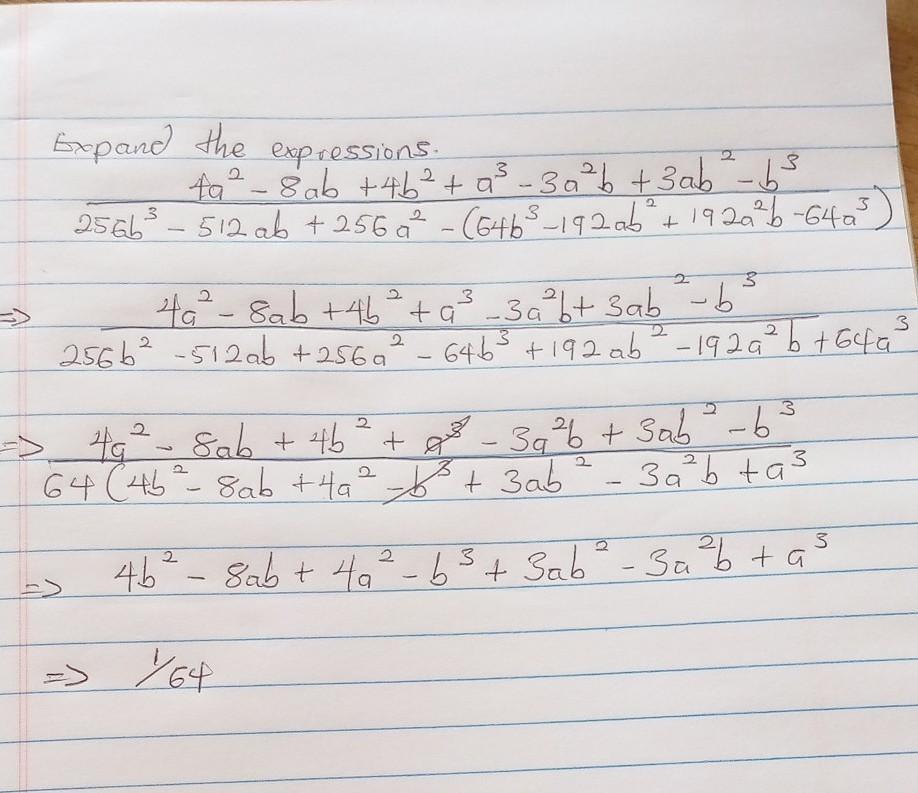 Expand the expressions.
4a² - 8ab + 4b² + a³ - 3a²b + 3ab² - b³
256b³ - 512ab + 256a² - (64b³ - 192ab² + 192a²b - 64a³)
=> 4a² - 8ab + 4b² + a³ - 3a²b + 3ab² - b³
256b² - 512ab + 256a² - 64b³ + 192ab² - 192a²b + 64a³
=> 4a² - 8ab + 4b² + a³ - 3a²b + 3ab² - b³
64(4b² - 8ab + 4a² - b³ + 3ab² - 3a²b + a³
=> 4b² - 8ab + 4a² - b³ + 3ab² - 3a²b + a³
=> 1/64